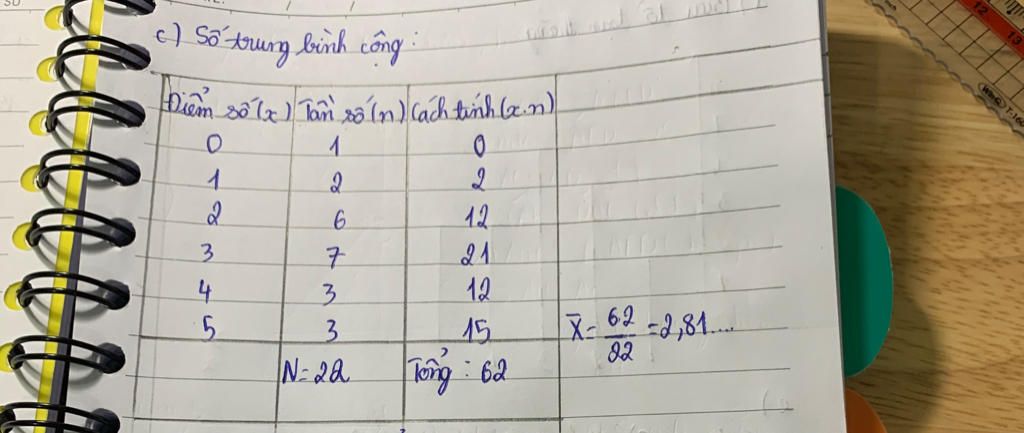 c) Số trung bình cộng:
Điểm số (x) Tần số (n) Cách tính (x.n)
0 1 0
1 2 2
2 6 12
3 7 21
4 3 12
5 3 15 X̄ = 62/22 = 2,81....
N = 22 Tổng : 62
12
13